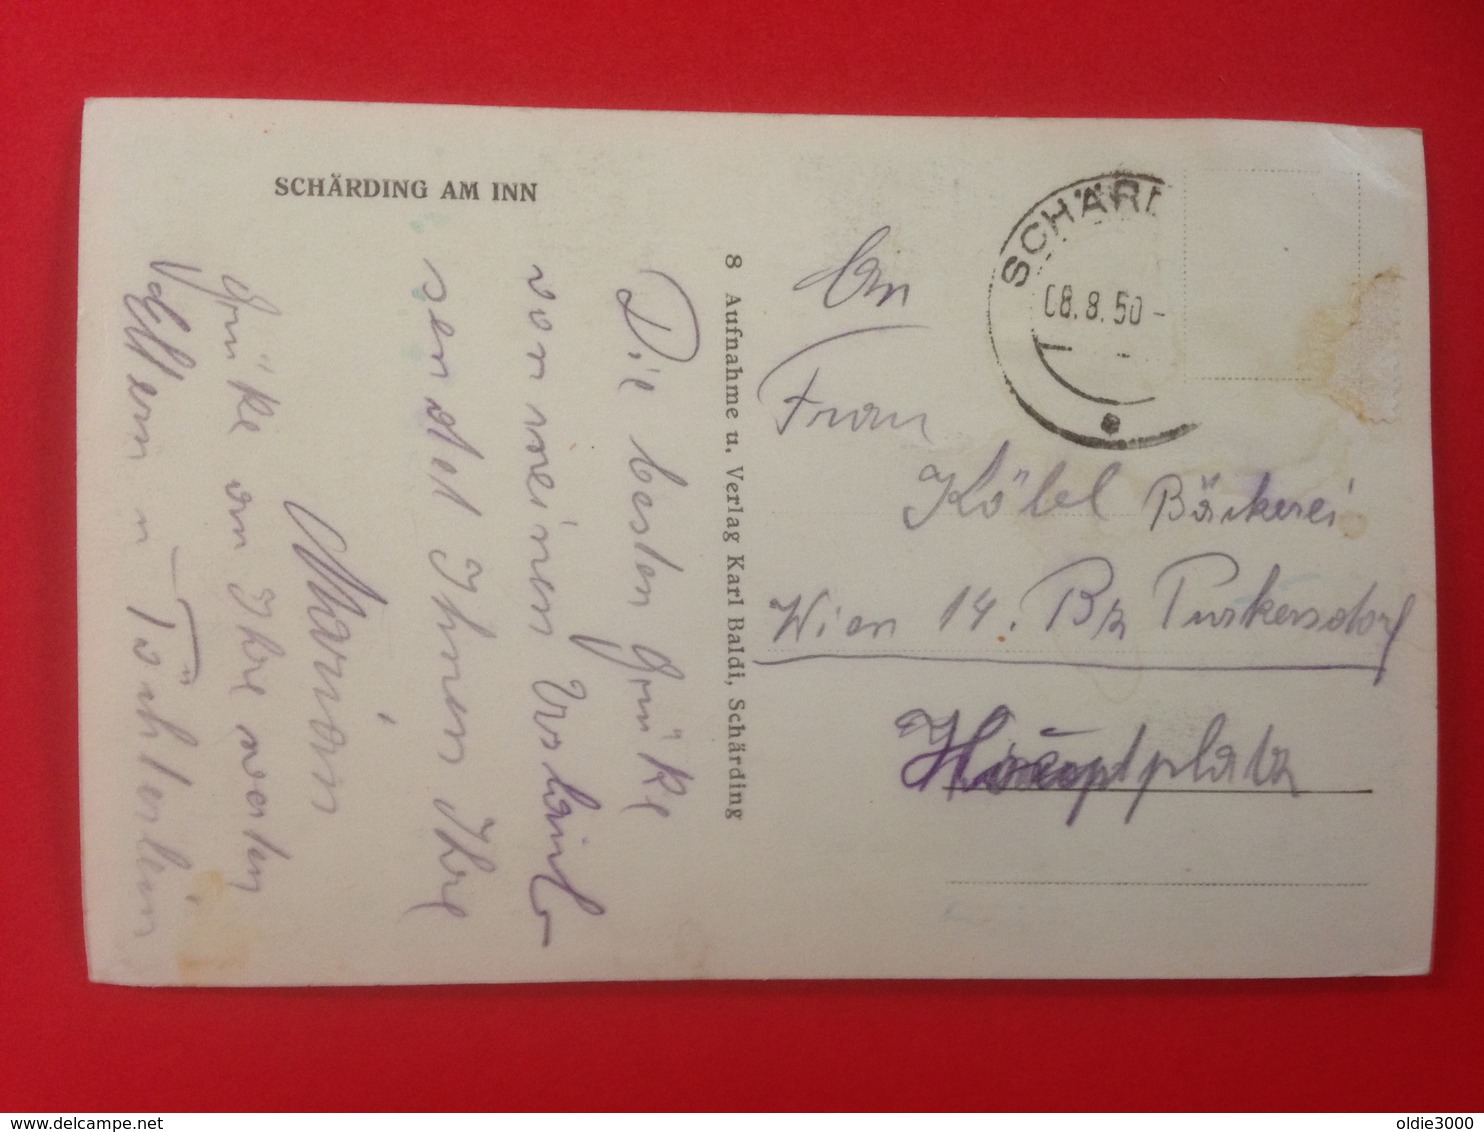 SCHÄRDING AM INN
Die besten Grüße
von meinem Urlaub
sendet Ihnen Ihre
Marion
Grüße an Ihre werten
Eltern u Töchterlein
8 Aufnahme u. Verlag Karl Baldi, Schärding
SCHÄRD
08.8.50-
An
Frau
Köbel Bäckerei
Wien 14. Bz Purkersdorf
Hauptplatz
delcampe.net
oldie3000